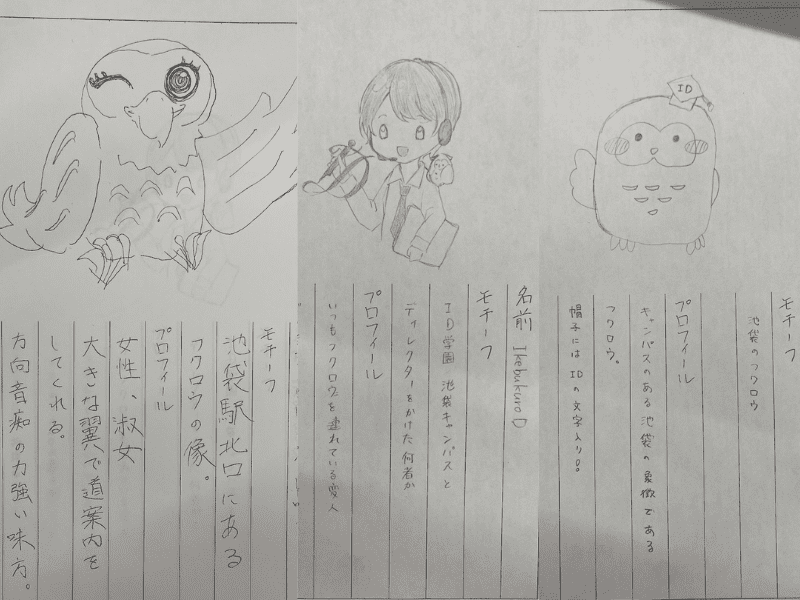 モチーフ
池袋駅北口にある
フクロウの像。
プロフィール
女性、淑女
大きな翼で道案内を
してくれる。
方向音痴の力強い味方。
名前 Ikebukuro D
モチーフ
ID学園 池袋キャンパスと
ディレクターをかけた何者か
プロフィール
いつもフクロウを連れている変人
ID
モチーフ
池袋のフクロウ
プロフィール
キャンパスのある池袋の象徴である
フクロウ。
帽子にはIDの文字入り!!